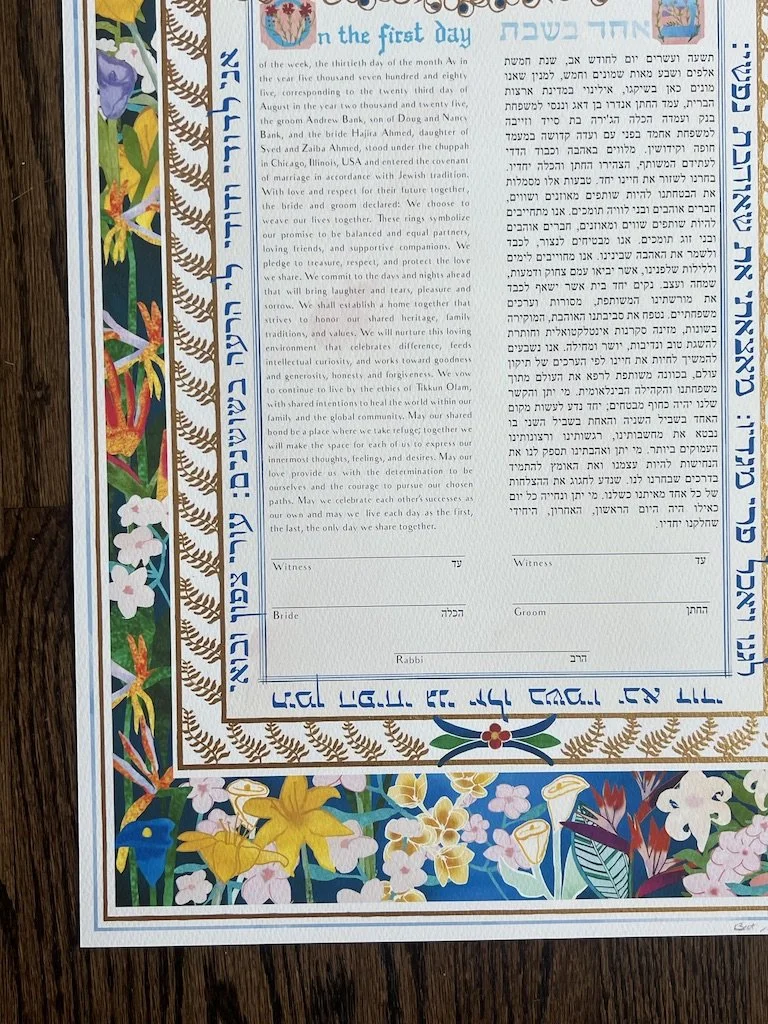 In the first day
of the week, the thirtieth day of the month Av in
the year five thousand seven hundred and eighty
five, corresponding to the twenty third day of
August in the year two thousand and twenty five,
the groom Andrew Bank, son of Doug and Nancy
Bank, and the bride Hajira Ahmed, daughter of
Syed and Zaiba Ahmed, stood under the chuppah
in Chicago, Illinois, USA and entered the covenant
of marriage in accordance with Jewish tradition.
With love and respect for their future together,
the bride and groom declared: We choose to
weave our lives together. These rings symbolize
our promise to be balanced and equal partners,
loving friends, and supportive companions. We
pledge to treasure, respect, and protect the love
we share. We commit to the days and nights ahead
that will bring laughter and tears, pleasure and
sorrow. We shall establish a home together that
strives to honor our shared heritage, family
traditions, and values. We will nurture this loving
environment that celebrates difference, feeds
intellectual curiosity, and works toward goodness
and generosity, honesty and forgiveness. We vow
to continue to live by the ethics of Tikkun Olam,
with shared intentions to heal the world within our
family and the global community. May our shared
bond be a place where we take refuge; together we
will make the space for each of us to express our
innermost thoughts, feelings, and desires. May our
love provide us with the determination to be
ourselves and the courage to pursue our chosen
paths. May we celebrate each other's successes as
our own and may we live each day as the first,
the last, the only day we share together.
אחד בשבת
תשעה ועשרים יום לחודש אב, שנת חמשת
אלפים ושבע מאות שמונים וחמש, למנין שאנו
מונים כאן בשיקגו, אילינוי במדינת ארצות
הברית, עמד החתן אנדרו בן דאג וננסי למשפחת
בנק ועמדה הכלה הג'ירה בת סייד וזייבה
למשפחת אחמד בפני עם ועדה קדושה במעמד
חופה וקידושין. מלווים באהבה וכבוד הדדי
לעתידם המשותף, הצהירו החתן והכלה יחדיו.
בחרנו לשזור את חיינו יחד. טבעות אלו מסמלות
את הבטחתנו להיות שותפים מאוזנים ושווים,
חברים אוהבים ובני לוויה תומכים. אנו מתחייבים
להיות שותפים שווים ומאוזנים, חברים אוהבים
ובני זוג תומכים. אנו מבטיחים לנצור, לכבד
ולשמר את האהבה שבינינו. אנו מחוייבים לימים
וללילות שלפנינו, אשר יביאו עמם צחוק ודמעות,
שמחה ועצב. נקים יחד בית אשר ישאף לכבד
את מורשתינו המשותפת, מסורות וערכים
משפחתיים. נטפח את סביבתנו האוהבת, המוקירה
בשונות, מזינה סקרנות אינטלקטואלית וחותרת
להשגת טוב ונדיבות, יושר ומחילה. אנו נשבעים
להמשיך לחיות את חיינו לפי הערכים של תיקון
עולם, בכוונה משותפת לרפא את העולם מתוך
משפחתנו והקהילה הבינלאומית. מי יתן והקשר
שלנו יהיה כחוף מבטחים; יחד נדע לעשות מקום
האחד בשביל השניה והאחת בשביל השני בו
נבטא את מחשבותינו, רגשותינו ורצונותינו
העמוקים ביותר. מי יתן ואהבתינו תספק לנו את
הנחישות להיות עצמנו ואת האומץ להתמיד
בדרכים שבחרנו לנו. שנדע לחגוג את ההצלחות
של כל אחד מאיתנו כשלנו. מי יתן ונחייה כל יום
כאילו היה היום הראשון, האחרון, היחידי
שחלקנו יחדיו.
Witness עד
Witness עד
Bride הכלה
Groom החתן
Rabbi הרב
אני לדודי ודודי לי הרעה בשושנים: עורי צפון ובואי
תימן הפיחי גני יזלו בשמיו יבא דודי
לגנו ויאכל פרי מגדיו: מצאתי את שאהבה נפשי: